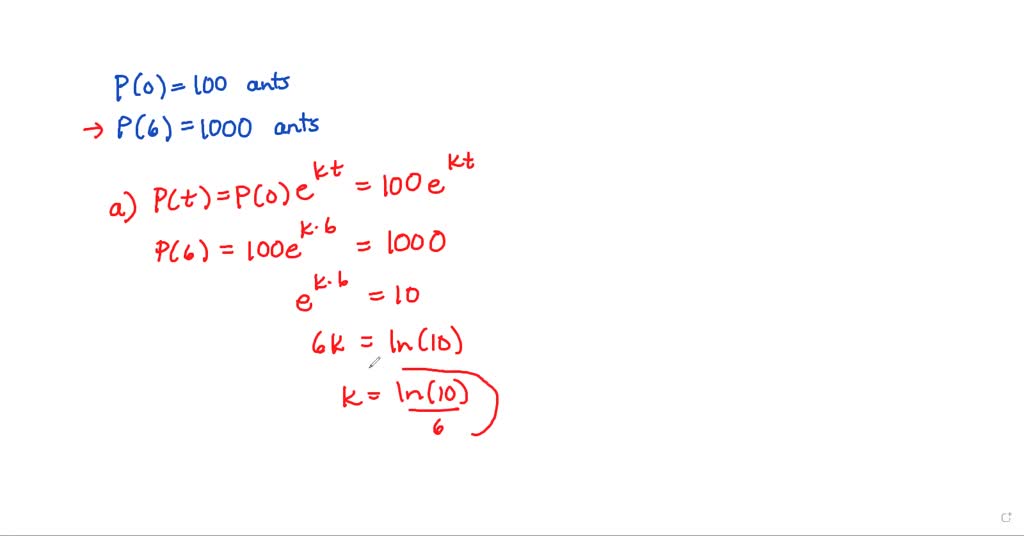 P(0) = 100 ants
→ P(6) = 1000 ants
a) P(t) = P(0)e^{kt} = 100e^{kt}
P(6) = 100e^{k·6} = 1000
e^{k·6} = 10
6k = ln(10)
k = ln(10)/6